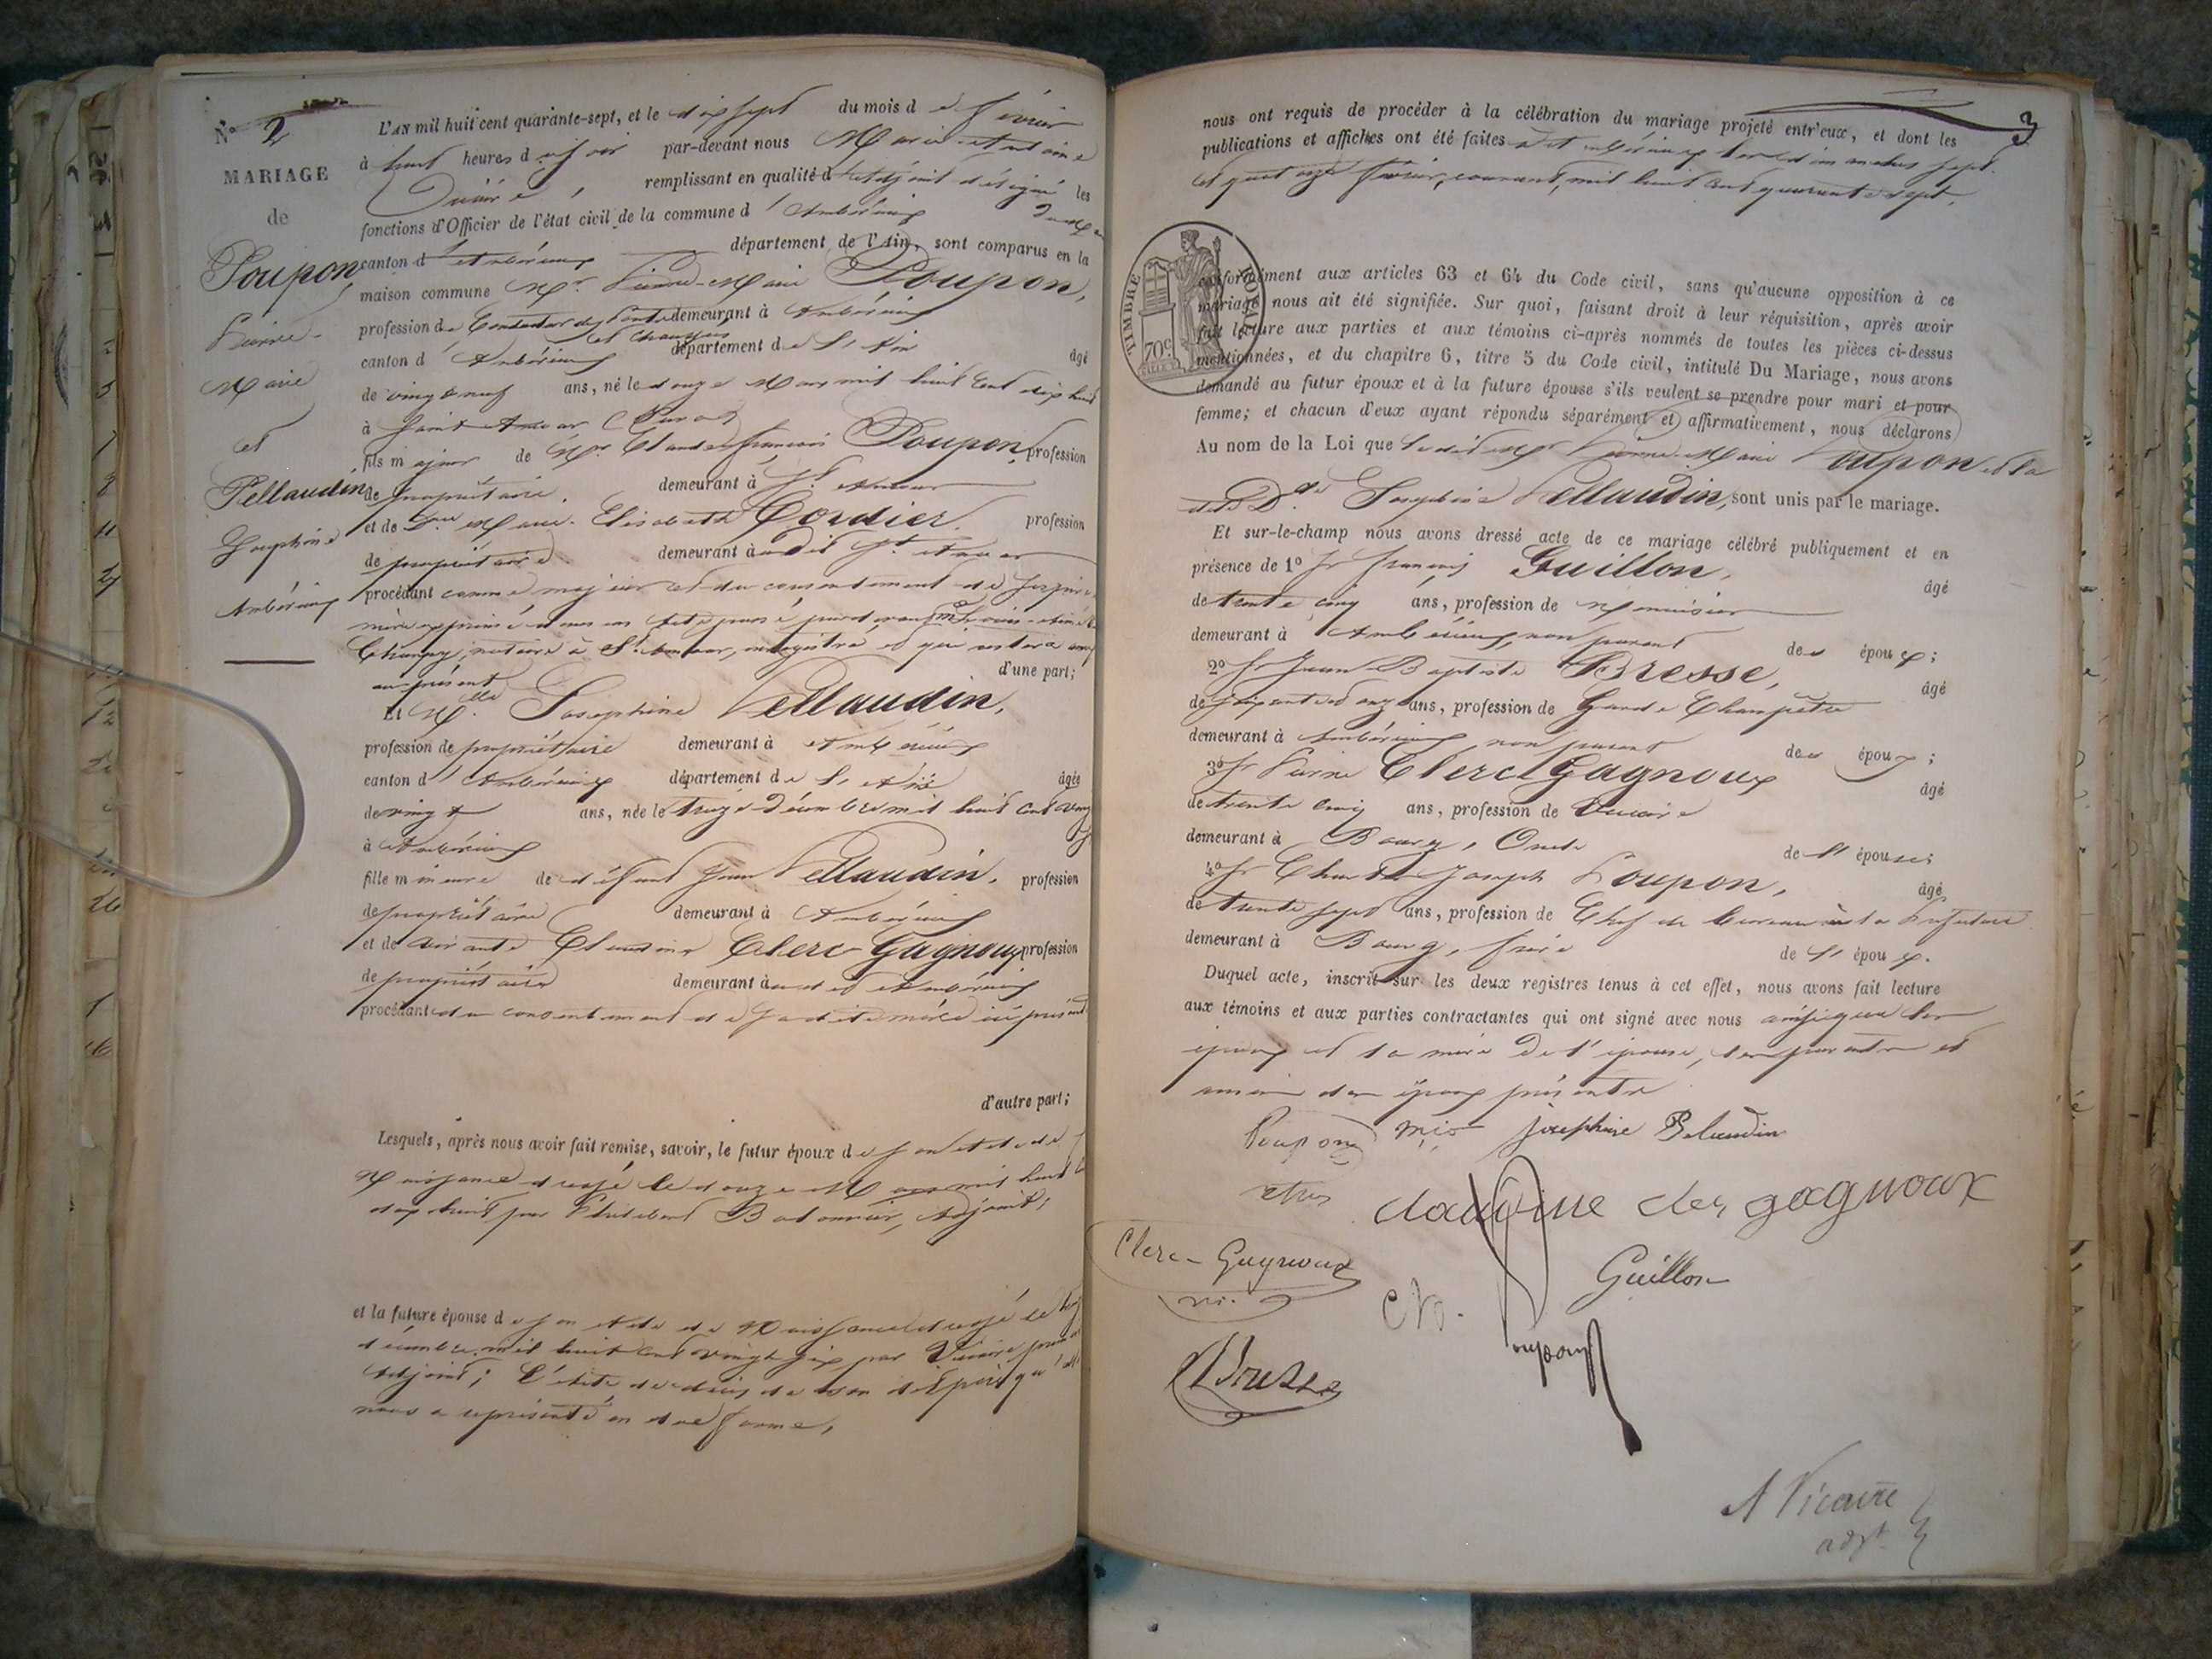 N° 2
MARIAGE
de
Poupon,
Pierre-
Marie
et
Pellaudin,
Josephine
Ambérieux
L'AN mil huit cent quarante-sept, et le dix sept du mois de février
à huit heures du soir par-devant nous Marie-Antoine
remplissant en qualité d'Adjoint délégué les
fonctions d'Officier de l'état civil de la commune d'Ambérieux
canton d'Ambérieux département de l'Ain, sont comparus en la
maison commune Mr. Pierre-Marie Poupon,
profession de Conducteur des Ponts demeurant à Ambérieux
et Chaussées
canton d'Ambérieux département de l'Ain âgé
de vingt neuf ans, né le douze Mars mil huit cent dix huit
à Saint Amour (Jura)
fils majeur de Mr. Claude-françois Poupon, profession
de propriétaire. demeurant à St. Amour
et de Dme Marie-Elisabeth Cordier. profession
de propriétaire demeurant audit St. Amour
procédant comme majeur et du consentement de ses père
mère exprimé dans un Acte passé pardevant
notaire à St. Amour, enregistré et qui restera
d'une part;
Et Melle Josephine Pellaudin,
profession de propriétaire demeurant à Ambérieux
canton d'Ambérieux département de l'Ain âgée
de vingt ans, née le treize Décembre mil huit cent vingt
à Ambérieux
fille mineure de défunt Jean Pellaudin, profession
de propriétaire demeurant à Ambérieux
et de vivante Claudine Clerc-Gagnoux profession
de propriétaire demeurant audit Ambérieux
procédant du consentement de sadite mère ici présente
d'autre part;
Lesquels, après nous avoir fait remise, savoir, le futur époux de son Acte de
Naissance dressé le douze Mars mil huit
dix huit par Philibert Adjoint;
et la future épouse de son Acte de Naissance dressé le
décembre mil huit cent vingt six par Vicaire
Adjoint; l'Acte de décès de son dit père
nous a représenté en due forme,
3
nous ont requis de procéder à la célébration du mariage projeté entr'eux, et dont les
publications et affiches ont été faites à Ambérieux les dimanches sept
et quatorze février, courant, mil huit cent quarante sept,
TIMBRE ROYAL
70c
conformément aux articles 63 et 64 du Code civil, sans qu'aucune opposition à ce
mariage nous ait été signifiée. Sur quoi, faisant droit à leur réquisition, après avoir
fait lecture aux parties et aux témoins ci-après nommés de toutes les pièces ci-dessus
mentionnées, et du chapitre 6, titre 5 du Code civil, intitulé Du Mariage, nous avons
demandé au futur époux et à la future épouse s'ils veulent se prendre pour mari et pour
femme; et chacun d'eux ayant répondu séparément et affirmativement, nous déclarons
Au nom de la Loi que ledit Mr Pierre-Marie Poupon et la
dite Dlle Josephine Pellaudin, sont unis par le mariage.
Et sur-le-champ nous avons dressé acte de ce mariage célébré publiquement et en
présence de 1° Sr françois Guillon, âgé
de trente cinq ans, profession de Menuisier
demeurant à Ambérieux, non parent des époux;
2° Sr Jean Baptiste Bresse, âgé
de soixante et onze ans, profession de Garde Champêtre
demeurant à Ambérieux non parent des époux;
3° Sr Pierre Clerc Gagnoux âgé
de trente cinq ans, profession de
demeurant à Bourg, Oncle de l'épouse;
4° Sr Charles Joseph Poupon, âgé
de trente sept ans, profession de Chef de bureau à la Préfecture
demeurant à Bourg, frère de l'époux.
Duquel acte, inscrit sur les deux registres tenus à cet effet, nous avons fait lecture
aux témoins et aux parties contractantes qui ont signé avec nous ainsi que les
époux et la mère de l'épouse, les parents et
amis des époux présents
Poupon josephine Pelaudin
claudine cler gagnoux
Clerc-Gagnoux
Guillon
Ch. Poupon
Bresse
A Vicaire
adjt